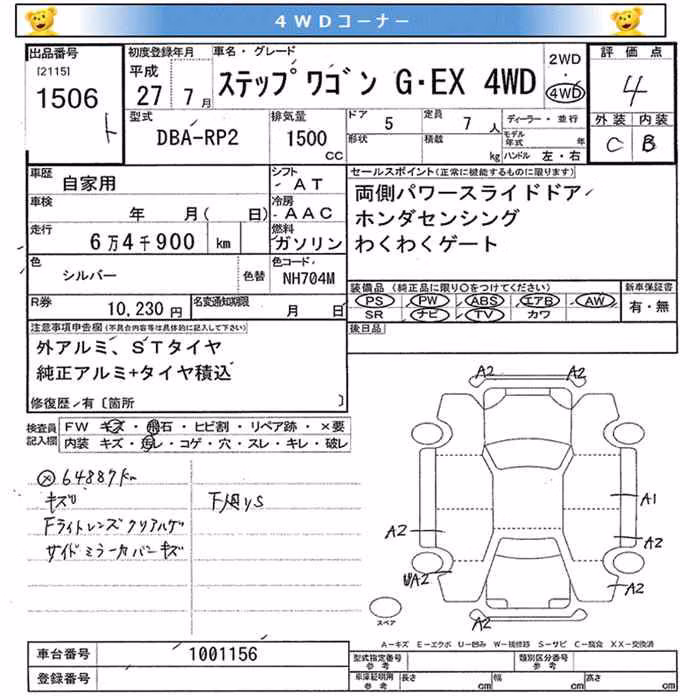 4WDコーナー
出品番号
[2115]
1506
ト
初度登録年月
平成
27 7月
車名・グレード
ステップワゴン G・EX 4WD
2WD
・
4WD
評価点
4
外装 内装
C B
型式
DBA-RP2
排気量
1500
CC
ドア 5
形状
定員 7 人
積載 kg
ディーラー・並行
モデル年式 年
ハンドル 左・右
車歴
自家用
シフト
AT
車検
年 月( 日)
冷房
AAC
走行
6万4千900 km
燃料
ガソリン
色
シルバー
色替
色コード
NH704M
R券
10,230円
名変通知期限
月 日
セールスポイント(正常に機能するものに限ります)
両側パワースライドドア
ホンダセンシング
わくわくゲート
装備品(純正品に限り○をつけてください)
PS PW ABS エアB AW
SR ナビ TV カワ
新車保証書
有・無
後日品
注意事項申告欄(不具合内容等は具体的に記入して下さい)
外アルミ、STタイヤ
純正アルミ+タイヤ積込
修復歴・有〔箇所 〕
検査員記入欄
FW キズ・飛石・ヒビ割・リペア跡・×要
内装 キズ・汚レ・コゲ・穴・スレ・キレ・破レ
64887km
キズ
Fライトレンズクリアハゲ
サイドミラーカバーキズ
下廻りS
A2 A2
A1
A2 A2
UA2 A2
A2
スペア
A-キズ E-エクボ U-凹み W-補修跡 S-サビ C-腐食 XX-交換済
車台番号
1001156
登録番号
型式指定番号
参考
類別区分番号
参考
車庫証明用
参考
長さ cm 幅 cm 高さ cm